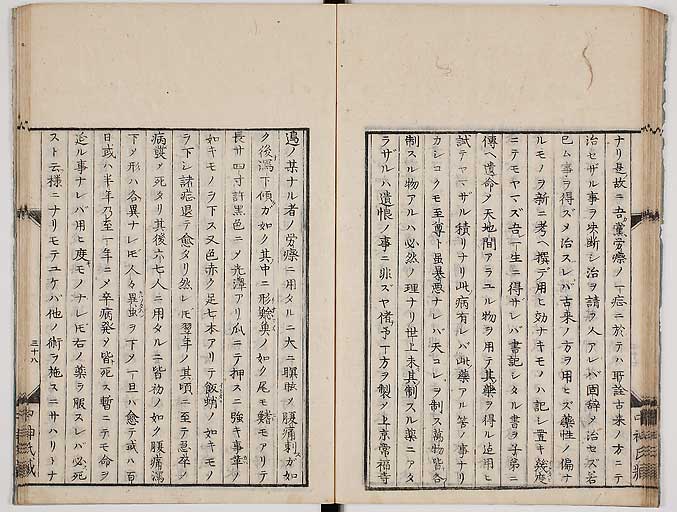 ナリ是故ニ吾黨労瘵ノ一症ニ於テハ所詮古来ノ方ニテ
治セザル事ヲ决断シ治ヲ請フ人アレバ固辞メ治セズ若
已ム事ヲ得ズメ治スレバ古来ノ方ヲ用ヒズ藥性ノ偏ナ
ルモノヲ新ニ考ヘ撰デ用ヒ効ナキモノハ記シ置キ幾度
ニテモヤマズ吾一生ニ得ザレバ書記シタル書ヲ子弟ニ
傳ヘ遺命メ天地間アラユル物ヲ用テ其藥ヲ得ル迠用ヒ
試テヤマザル積リナリ此病有レバ此藥アル筈ノ事ナリ
カシコクモ至尊ト虽暴悪ナレバ天コレヲ制ス萬物皆各
制スル物アルハ必然ノ理ナリ世上未其制スル藥ニアタ
ラザルハ遺恨ノ事ニ非ズヤ偖予一方ヲ製メ上京常福寺
邉ノ某ナル者ノ労瘵ニ用タルニ大ニ瞑眩メ腹痛刺スガ如
ク後瀉下傾ガ如ク其中ニ形ノ如ク尾モ鰭モアリテ
長サ四寸許黒色ニメ光澤アリ爪ニテ押スニ強キ事革ノ
如キモノヲ下ス又色赤ク足七本アリテ飯蛸ノ如キモノ
ヲ下シ諸症退テ愈タリ然レモ翌年ノ其頃ニ至テ忽卒ノ
病發メ死タリ其後六七人ニ用タルニ皆初ノ如ク腹痛瀉
下メ形ハ各異ナレモ人々異虫ヲ下メ一旦ハ愈テ或ハ百
日或ハ半年乃至一年ニメ卒病発メ皆死ス暫ニテモ命ヲ
延ル事ナレバ用ヒ度モノナレモ右ノ藥ヲ服スレバ必死
スト云様ニナリモテユケバ他ノ術ヲ施スニサハリトナ
三十八
中神氏蔵